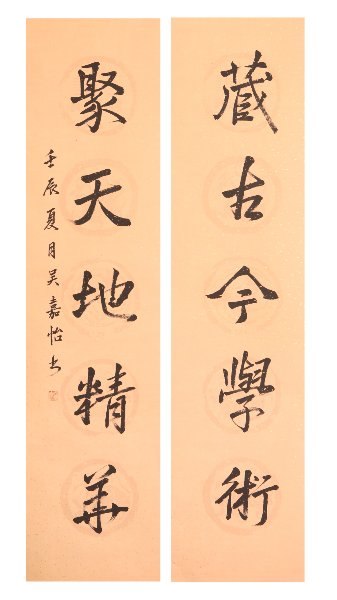 藏古今學術
聚天地精華
壬辰夏月吴嘉怡书